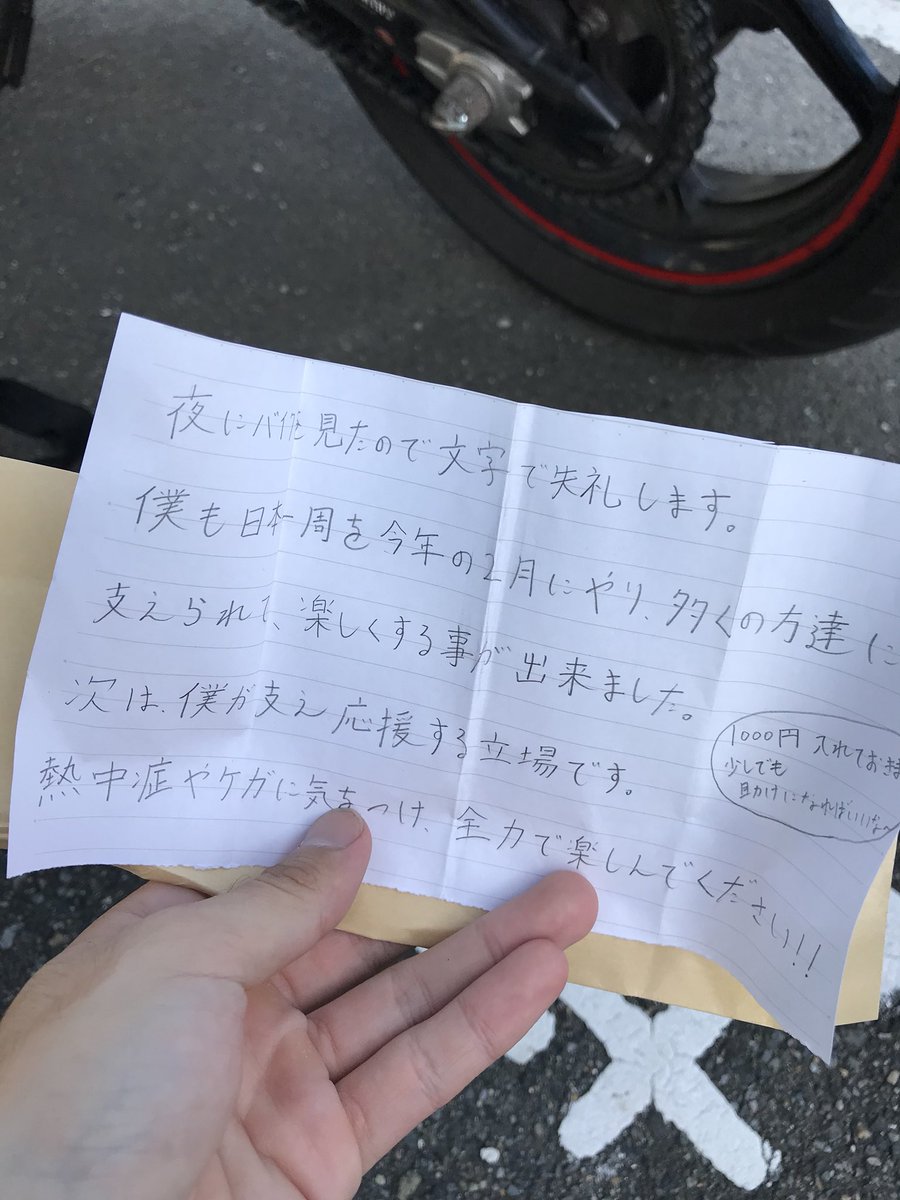 夜にバイクを見たので文字で失礼します。
僕も日本一周を今年の2月にやり、多くの方達に
支えられて、楽しくする事が出来ました。
次は、僕が支え応援する立場です。
1000円 入れておきま
少しでも
助けになればいいな〜
熱中症やケガに気をつけ、全力で楽しんでください!!